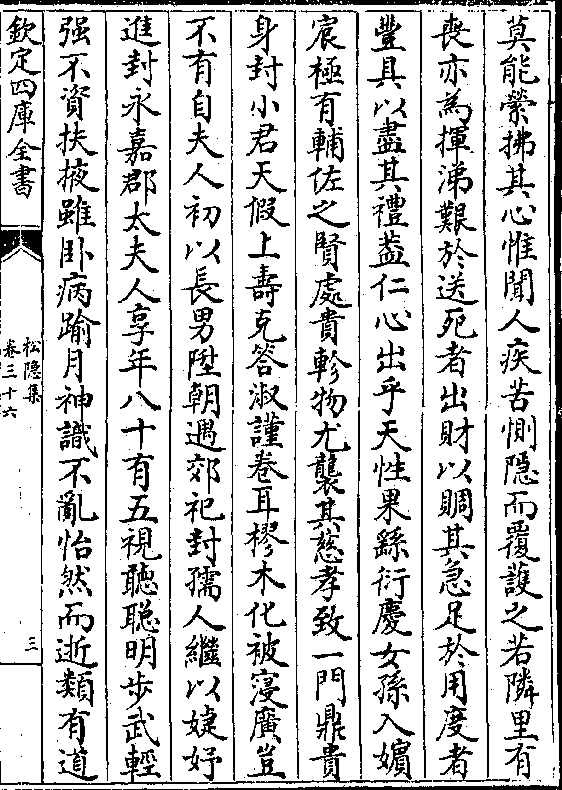 莫能縈拂其心惟聞人疾苦惻隠而覆䕶之若隣里有
喪亦為揮涕艱於送死者出財以賙其急足於用度者
豐具以盡其禮葢仁心出乎天性果繇衍慶女孫入嬪
宸極有輔佐之賢處貴軫物尤襲其慈孝致一門鼎貴
身封小君天假上壽克答淑謹卷耳樛木化被寖廣豈
不有自夫人初以長男陞朝遇郊祀封孺人繼以婕妤
進封永嘉郡太夫人享年八十有五視聽聡明步武輕
强不資扶掖雖卧病踰月神識不亂怡然而逝類有道
欽定四庫全書
松隠集
卷三十六
三